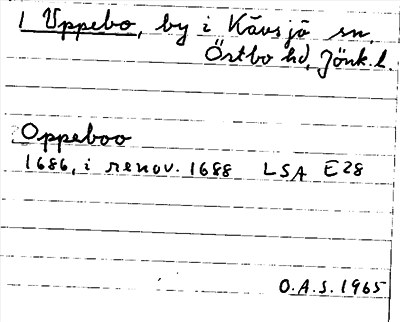 1 Uppebo, by i Kävsjö sn,
Östbo hd, Jönk.l.
Oppeboo
1686, i renov. 1688 LSA E28
O.A.S. 1965